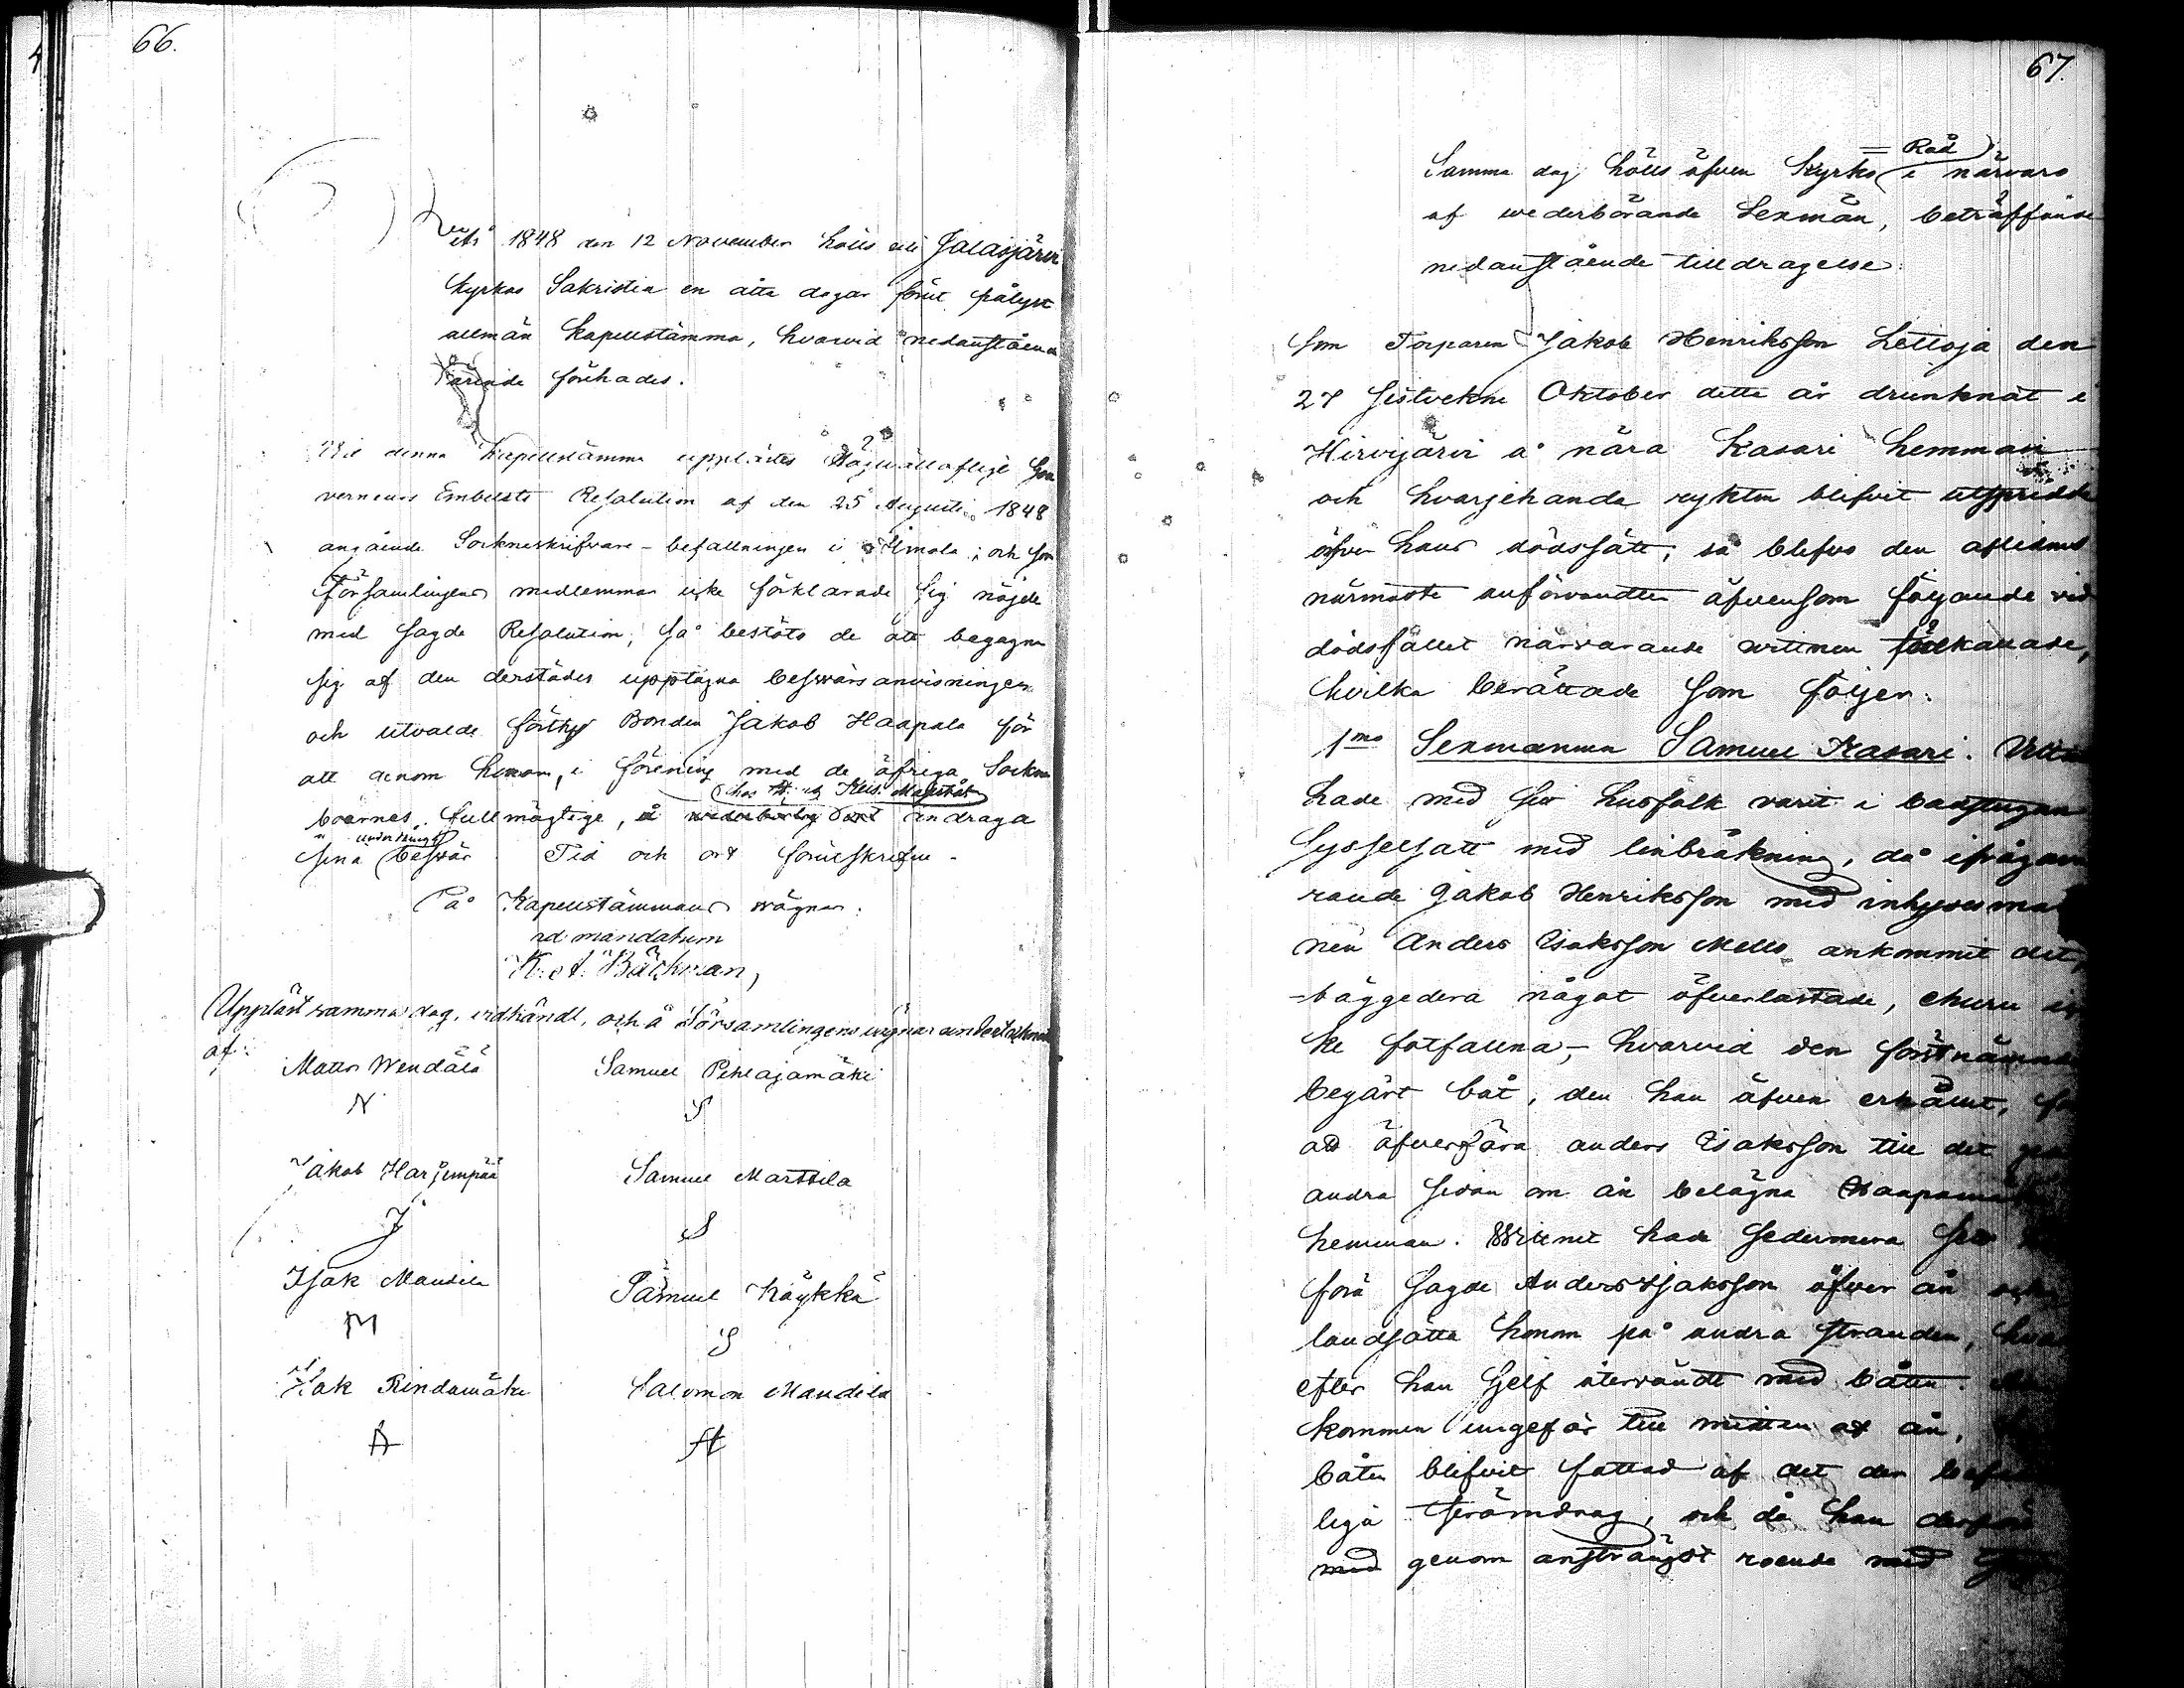 66.
År 1848 den 12 November hölls uti Jalasjärvi
Kyrkas Sakristia en åtta dagar förut pålyst
allmän Kapellstämma, hvarvid nedanstående
ärende förehades.
Vid denna Kapellstämma upplästes Högvälloflige Gou
verneurs Embetets Resolution af den 25 Augusti 1848
angående Sockneskrifvare-befallningen i Ilmola; och som
Församlingens medlemmar icke förklarade sig nöjde
med sagde Resolution, så beslöts de att begagna
sig af den derstädes upptagna besvärsanvisningen
och utvalde förthy Bonden Jakob Haapala för
att genom honom, i förening med de öfriga Sockne
hos H. Kejs. Majestät
boernes fullmägtige, å wederbörlig ort andraga
underdånigst
sina besvär Tid och ort förutskrefne.
På Kapellstämmans vägnar:
ad mandatum
K. A. Bäckman,
Uppläst samma dag, vidkändt, och å Församlingens vägnar undertecknadt
af:
Matts Wendälä Samuel Pihlajamäki
N S
Jakob Harjumpää Samuel Marttila
J S
Isak Mandila Samuel Köykkä
M S
Isak Rindamäki Salomon Mandila
A
67.
= Råd
Samma dag hölls äfven Kyrko i närvaro
af wederbörande Sexmän, beträffande
nedanstående tilldragelse:
Som Torparen Jakob Henriksson Lettoja den
27 sistvekne Oktober detta år drunknat i
Hirvijärvi å nära Kasari hemman
och hvarjehanda rykten blifvit utspridde
öfver hans dödssätt; så blefvo den aflidnes
närmaste anförvandter äfvensom följande vid
dödsfallet närvarande vittnen tillkallade,
hvilka berättade som följer:
1mo Sexmannen Samuel Kasari. Vittnet
hade med sitt husfolk varit i badstugan
sysselsatt med linbråkning, då ifrågava
rande Jakob Henriksson med inhysesman
nen Anders Isaksson Mello ankommit dit,
båggedera något öfverlastade, ehuru ic
ke fatfallna, hvarvid den förstnämnde
begärt båt, den han äfven erhållit, för
att öfverföra Anders Isaksson till det på
andra sidan om ån belägna Haapamäki
hemman. Wittnet hade sedermera sett
föra sagde Anders Isaksson öfver ån och
landsätta honom på andra stranden, hvar
efter han sjelf återvändt med båten.
kommen ungefär till midten af ån,
båten blifvit fattad af det der
liga strömdrag, och då han
med genom ansträngdt roende med